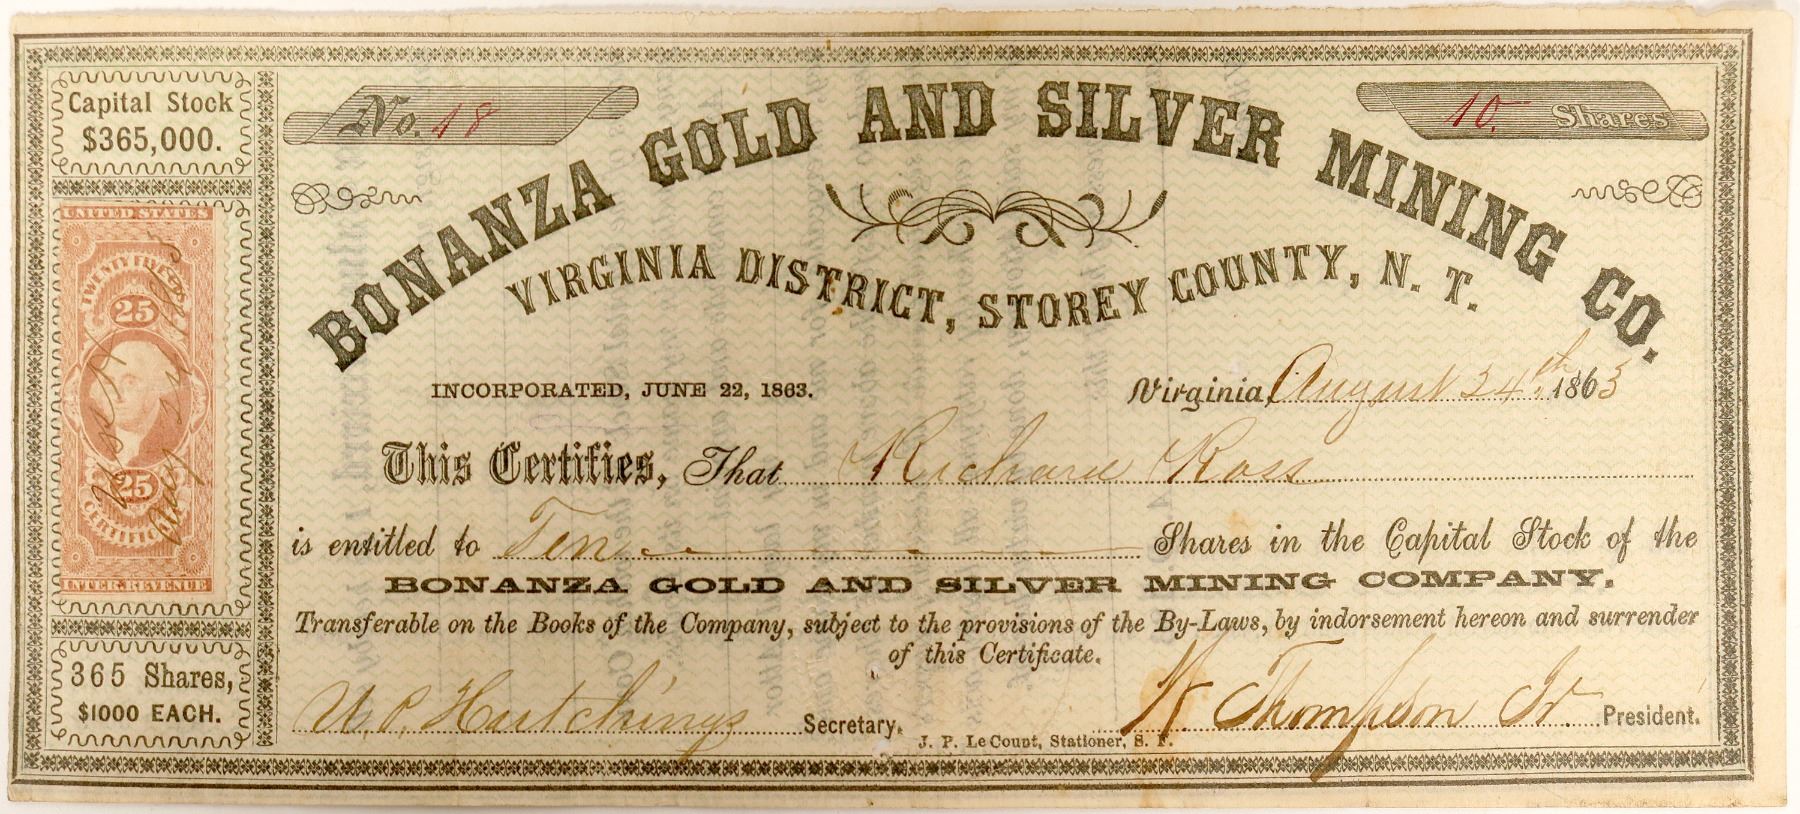 Capital Stock
$365,000.
No. 18
10. Shares
BONANZA GOLD AND SILVER MINING CO.
VIRGINIA DISTRICT, STOREY COUNTY, N. T.
UNITED STATES
TWENTY FIVE CENTS
25
25
CERTIFICATE
INTER. REVENUE
INCORPORATED, JUNE 22, 1863.
Virginia, August 24th, 1863
This Certifies, That Richard Ross
is entitled to Ten Shares in the Capital Stock of the
BONANZA GOLD AND SILVER MINING COMPANY.
Transferable on the Books of the Company, subject to the provisions of the By-Laws, by indorsement hereon and surrender
of this Certificate.
365 Shares,
$1000 EACH.
U. P. Hutchings Secretary.
W Thompson Jr. President.
J. P. Le Count, Stationer, S. F.